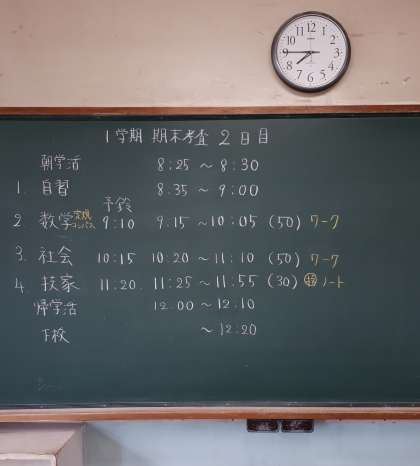 12 1 2 3 4 5 6 7 8 9 10 11
1学期 期末考査 2日目
朝学活 8:25 ~ 8:30
1. 自習 8:35 ~ 9:00
予鈴
2. 数学 定規 コンパス 9:10 9:15 ~ 10:05 (50) ワーク
3. 社会 10:15 10:20 ~ 11:10 (50) ワーク
4. 技家 11:20. 11:25 ~ 11:55 (30) ノート
帰学活 12:00 ~ 12:10
下校 ~ 12:20